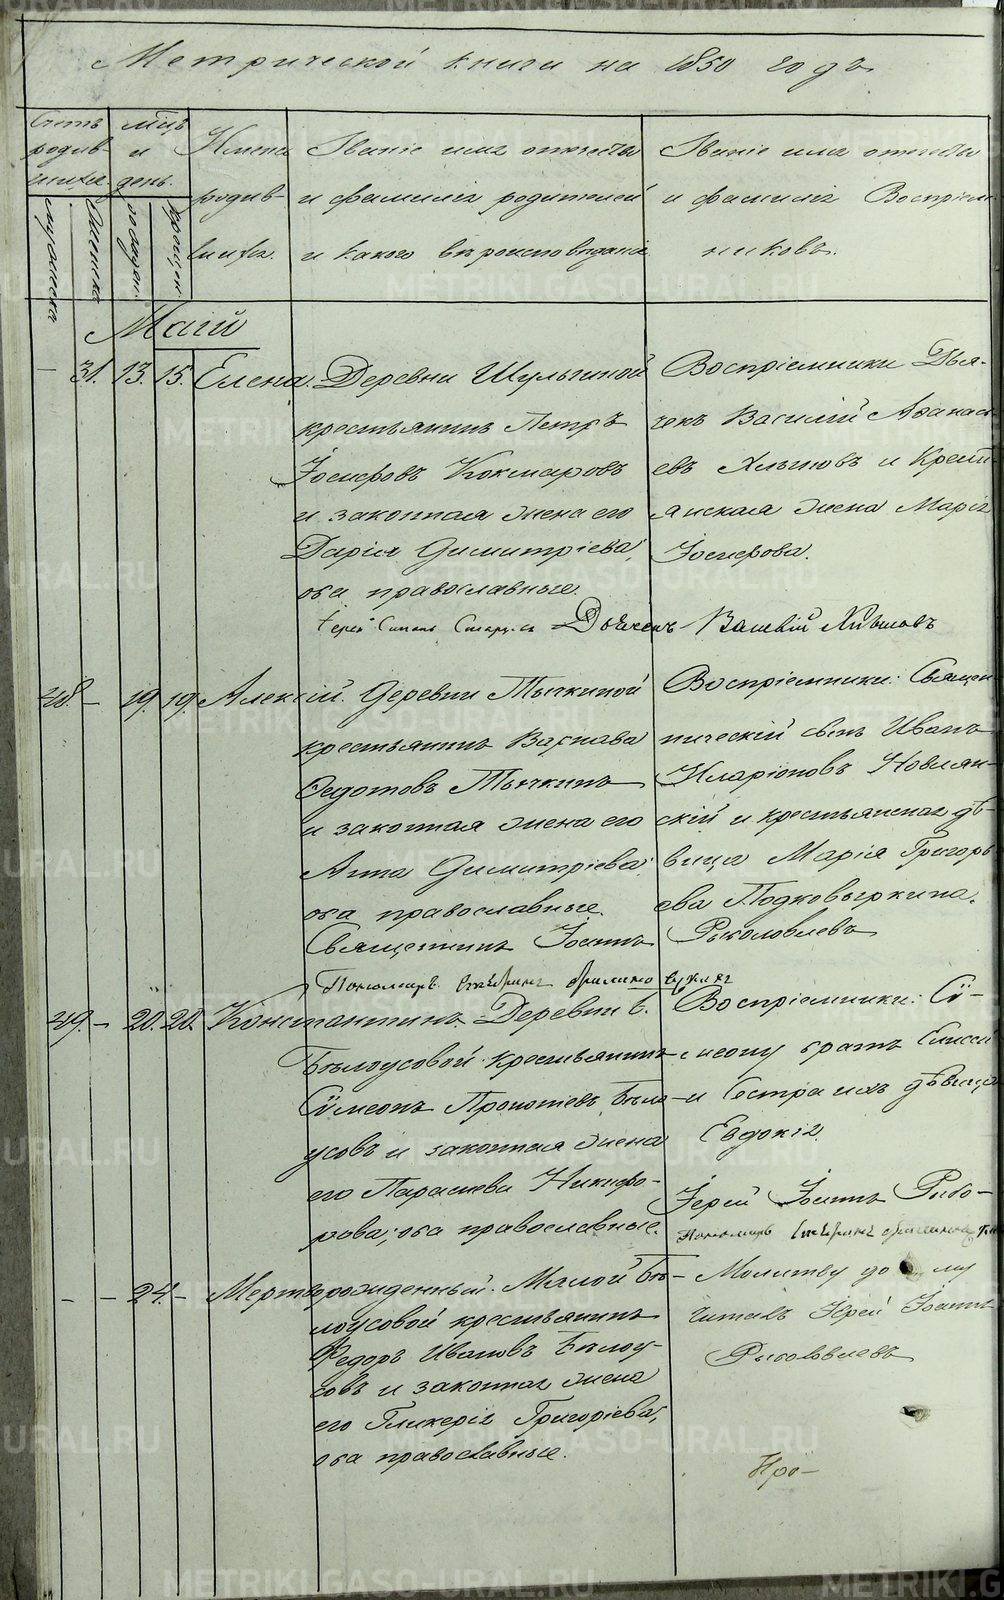 Метрической книги на 1850 годъ
Счетъ родив-шихся
мцъ и день.
Имена родив-шихся.
Званіе имя отчество и фамилія родителей и какого вѣроисповѣданія
Званіе имя отчество и фамилія Воспріем-никовъ.
мужеска
женска
рожден.
крещен.
Маій
— 31. 13. 15. Елена.
Деревни Шульгиной
крестьянинъ Петръ
Іосифовъ Кокшаровъ
и законная жена его
Дарія Димитріева,
оба православные.
Воспріемники Дья-
чекъ Василій Афанась-
евъ Хлыновъ и Крестья-
янская жена Марія
Іосифова.
Іерей Дьячекъ Василій Хлыновъ
48. — 19. 19. Алексій.
Деревни Тычкиной
крестьянинъ Варнава
Ѳедотовъ Тычкинъ
и законная жена его
Анна Димитріева
оба православные.
Воспріемники: Священ-
ническій сынъ Иванъ
Иларіоновъ Новлян-
скій и крестьянская дѣ-
вица Марія Григорь-
ева Подковыркина.
Священникъ Іоаннъ Рыболовлевъ
Пономарь
49. — 20. 20. Константинъ.
Деревни Б.
Бѣлоусовой крестьянинъ
Сѵмеонъ Прокопіевъ Бѣло-
усовъ и законная жена
его Параскева Никифо-
рова, оба православные.
Воспріемники: Сѵ-
меону братъ Елисей
и Сестра ихъ дѣвица
Евдокія.
Іерей Іоаннъ Рыбо-
Пономарь
— — 24. — Мертворожденный.
Малой Бѣ-
лоусовой крестьянинъ
Ѳедоръ Ивановъ Бѣлоу-
совъ и законная жена
его Гликерія Григоріева,
оба православные.
Молитву до му
читалъ Іерей Іоаннъ
Рыболовлевъ
Про-
METRIKI.GASO-URAL.RU